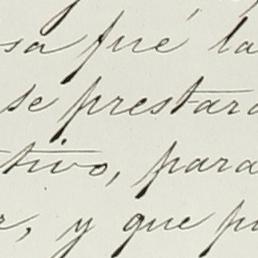 sa fué la
se prestara
tivo, para
r, y que p